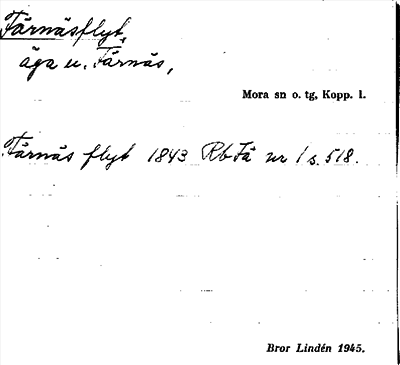 Färnäsflyt,
äga u. Färnäs,
Mora sn o. tg, Kopp. l.
Färnäs flyt 1843 Rb Fä nr 1 s. 518.
Bror Lindén 1945.